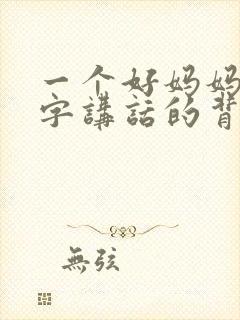 一个好妈妈
字講話的背
無弦